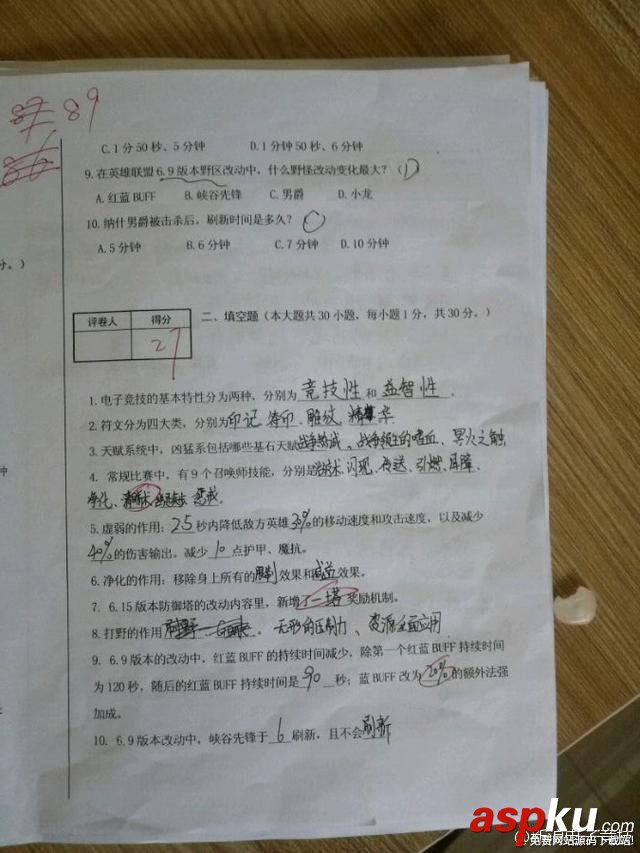 89
C.1分50秒、5分钟 D.1分钟50秒、6分钟
9.在英雄联盟6.9版本野区改动中，什么野怪改动变化最大？（D）
A.红蓝BUFF B.峡谷先锋 C.男爵 D.小龙
10.纳什男爵被击杀后，刷新时间是多久？（）
A.5分钟 B.6分钟 C.7分钟 D.10分钟
分。）
评卷人 得分
27
二、填空题（本大题共30小题，每小题1分，共30分。）
1.电子竞技的基本特性分为两种，分别为 竞技性 和 益智性 。
2.符文分为四大类，分别为印记、符印、雕纹、精华
3.天赋系统中，凶猛系包括哪些基石天赋战争热诚、战争领主的嗜血、冥火之触
4. 常规比赛中，有9个召唤师技能，分别是治疗术、闪现、传送、引燃、屏障、
钟
净化、清晰术 惩戒
5.虚弱的作用：2.5秒内降低敌方英雄30%的移动速度和攻击速度，以及减少
40%的伤害输出。减少10点护甲、魔抗。
6.净化的作用：移除身上所有的限制效果和减益效果。
7. 6.15版本防御塔的改动内容里，新增了一塔奖励机制。
8.打野的作用 。无形的压制力、资源全面应用
9. 6.9版本的改动中，红蓝BUFF的持续时间减少，除第一个红蓝BUFF持续时间
为120秒，随后的红蓝BUFF持续时间是90秒；蓝BUFF改为20%的额外法强
加成。
10. 6.9版本改动中，峡谷先锋于6刷新，且不会刷新
aspku.com
免费网站源码下载站!